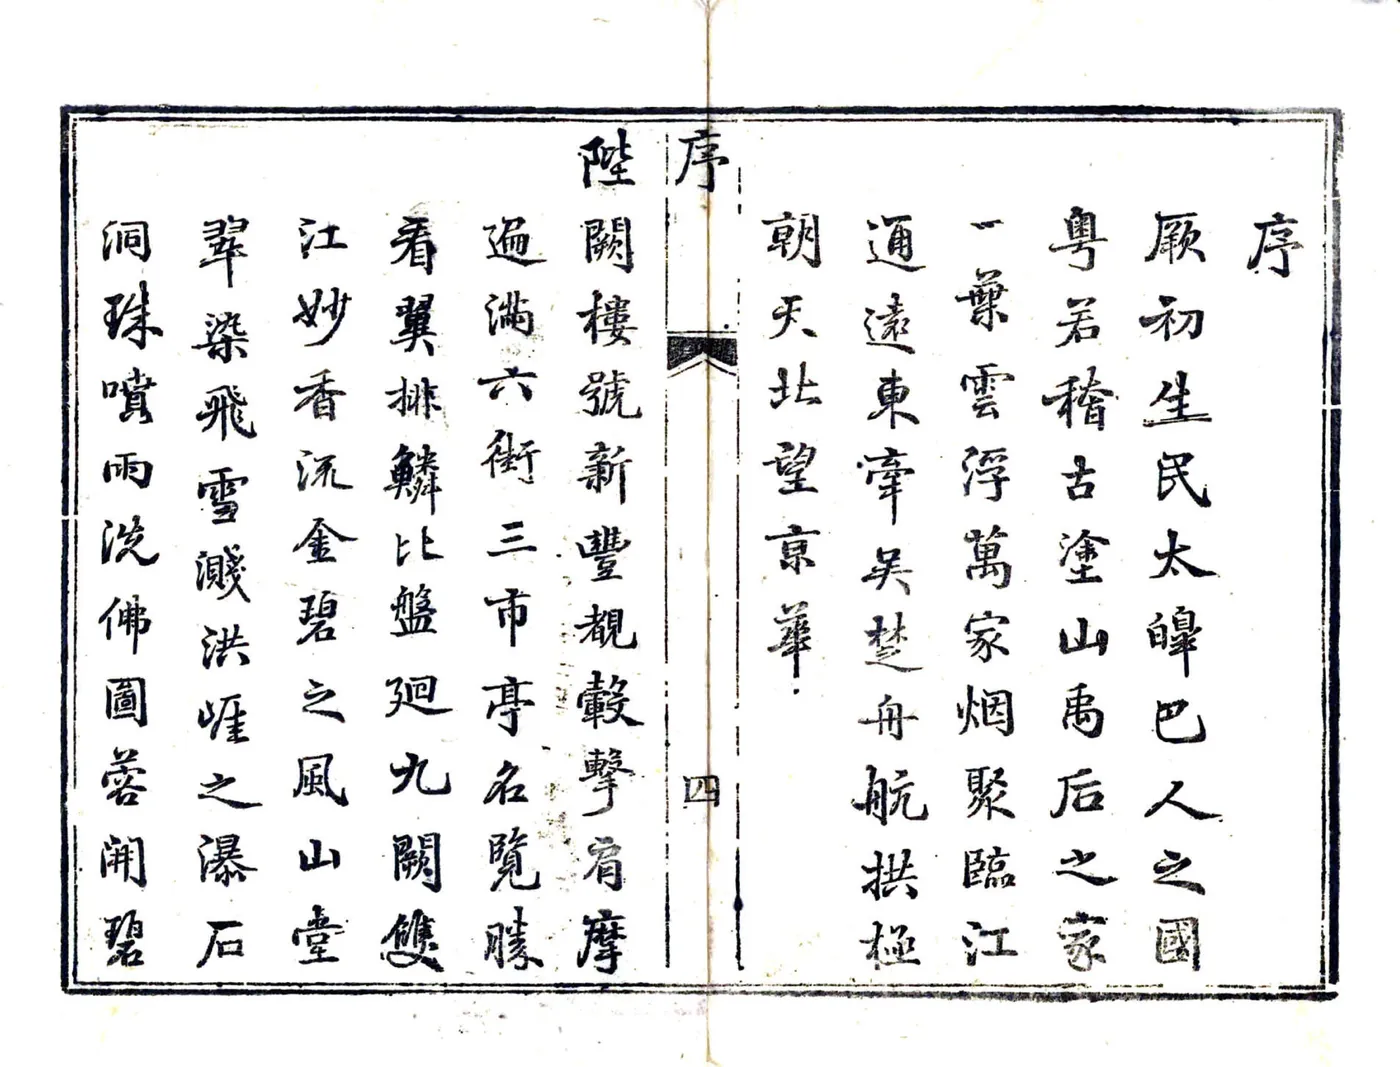 序
厥初生民太皞巴人之國
粵若稽古塗山禹后之家
一葉雲浮萬家烟聚臨江
通遠東牽吳楚舟航拱極
朝天北望京華
序
四
陛闕樓號新豐覩轂擊肩摩
遍滿六街三市亭名覽勝
看翼排鱗比盤廻九闕雙
江妙香流金碧之風山堂
翠染飛雪濺洪崖之瀑石
洞珠噴雨洗佛圖蓉開碧